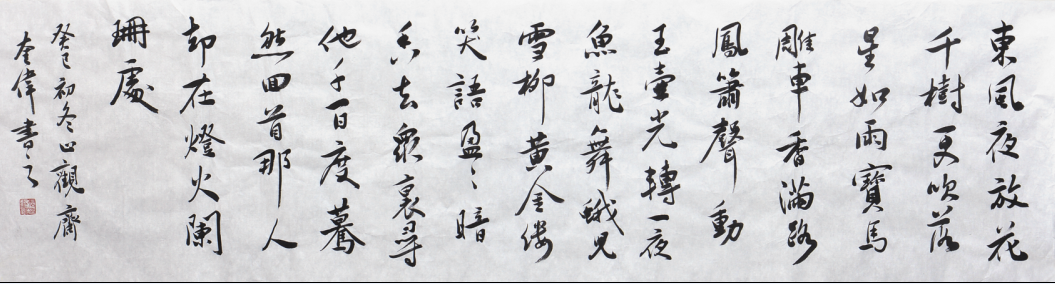 東風夜放花
千樹更吹落
星如雨寶馬
雕車香滿路
鳳簫聲動
玉壺光轉一夜
魚龍舞蛾兒
雪柳黃金縷
笑語盈〻暗
香去眾裏尋
他千百度驀
然回首那人
却在燈火闌
珊處
癸巳初冬止觀齋
奎偉書之